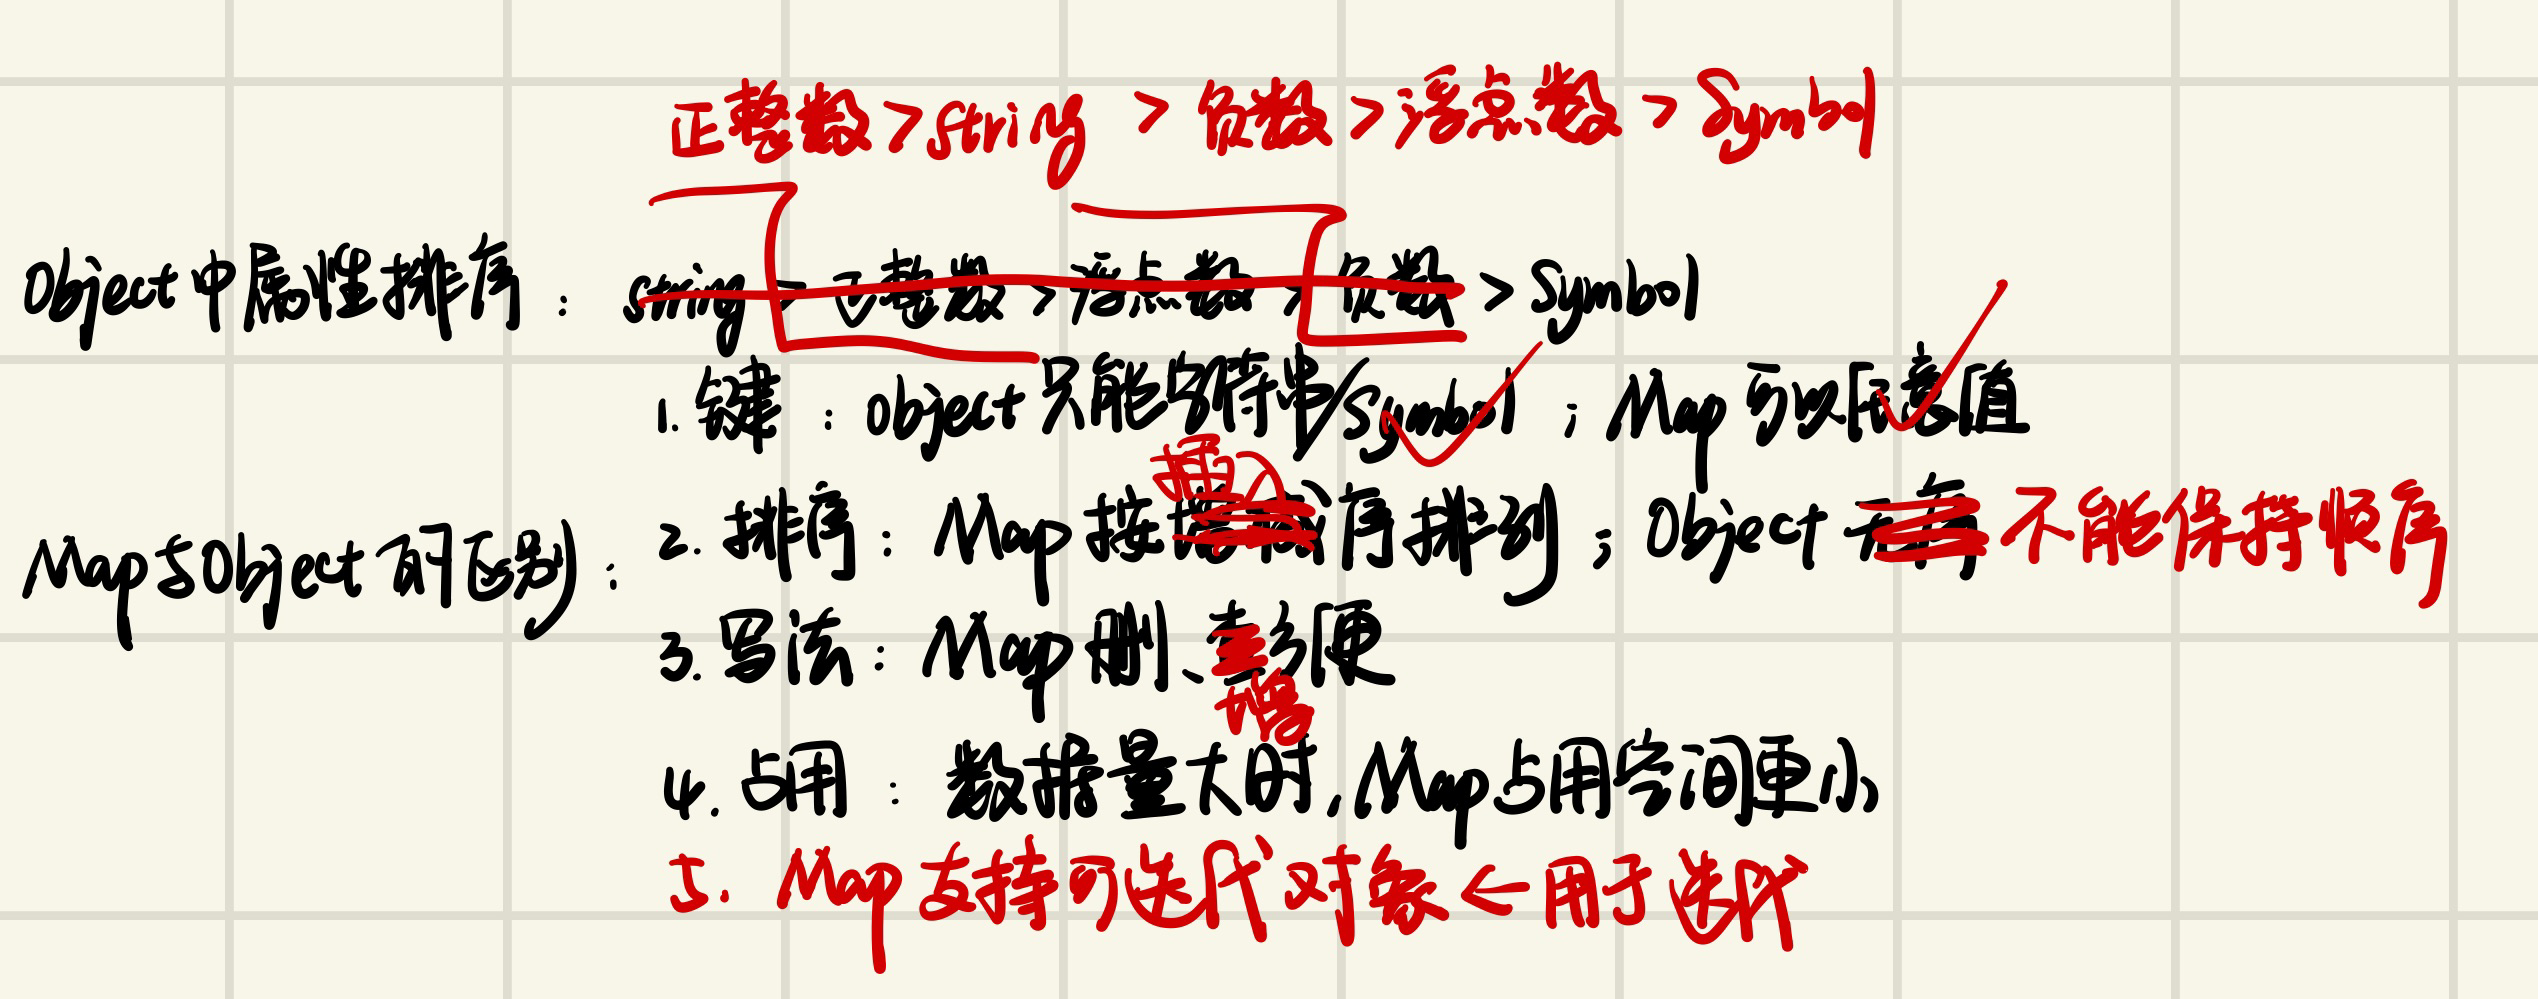 正整数>string > 负数>浮点数 > Symbol
Object中属性排序： string > 正整数>浮点数>负数 > Symbol
1.键：object只能字符串/Symbol；Map可以任意值
Map与Object的区别：
2.排序：Map按插入序排列；Object 无序 不能保持顺序
3.写法：Map删、查方便
增
4.占用：数据量大时，Map占用空间更小
5. Map支持可迭代对象←用于迭代